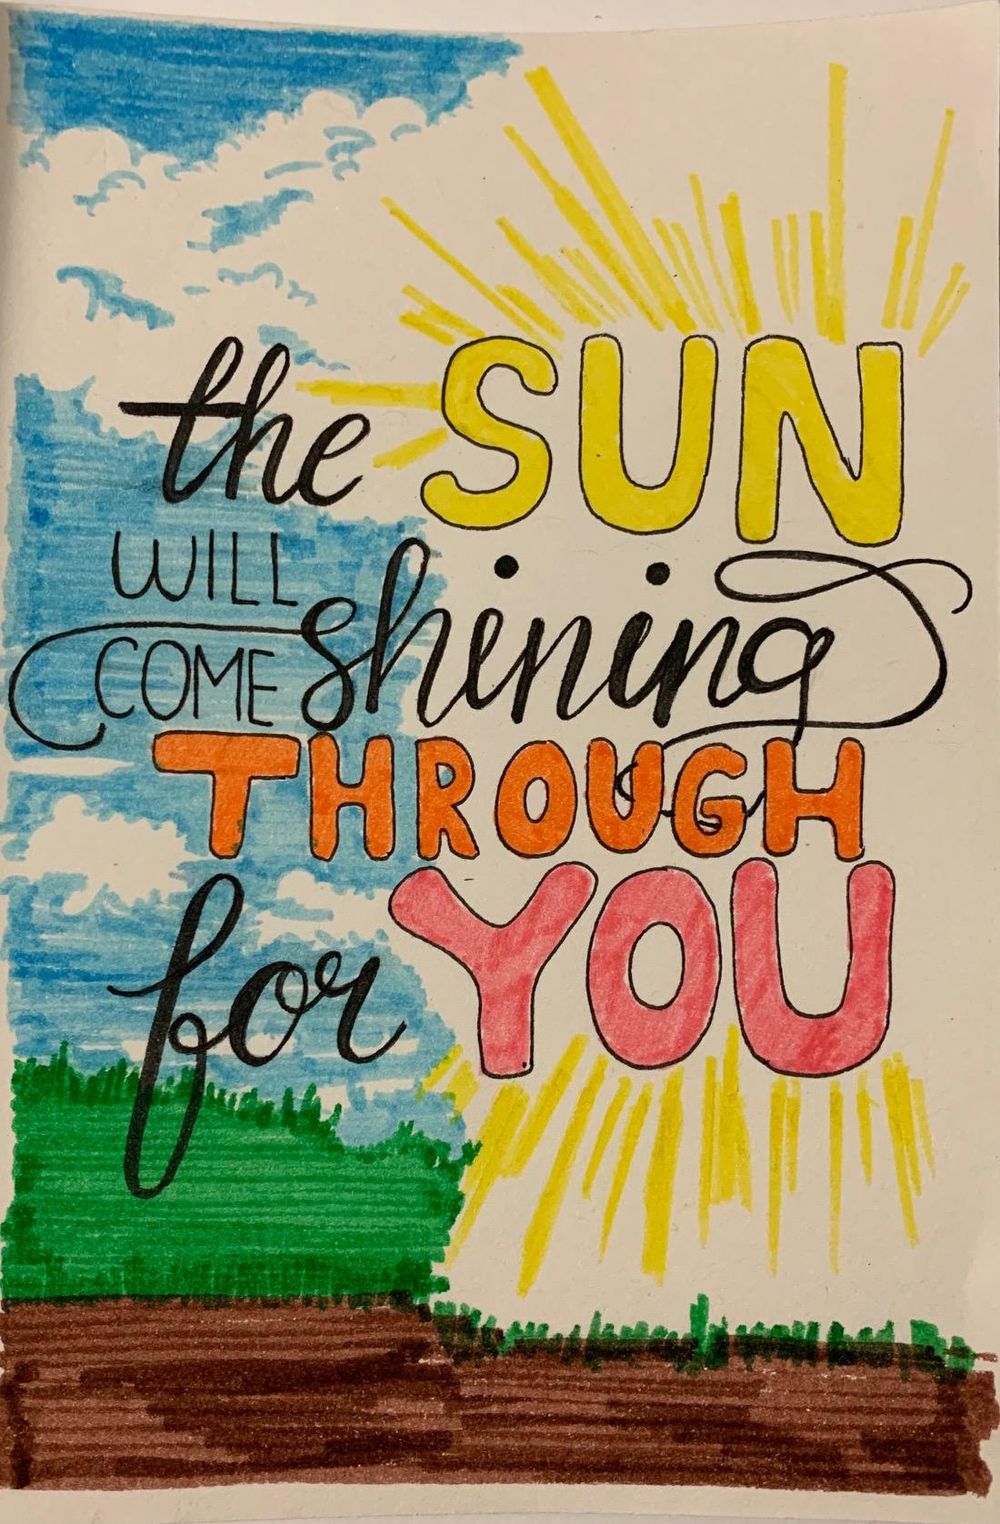 the SUN
WILL
COME shining
THROUGH
for YOU